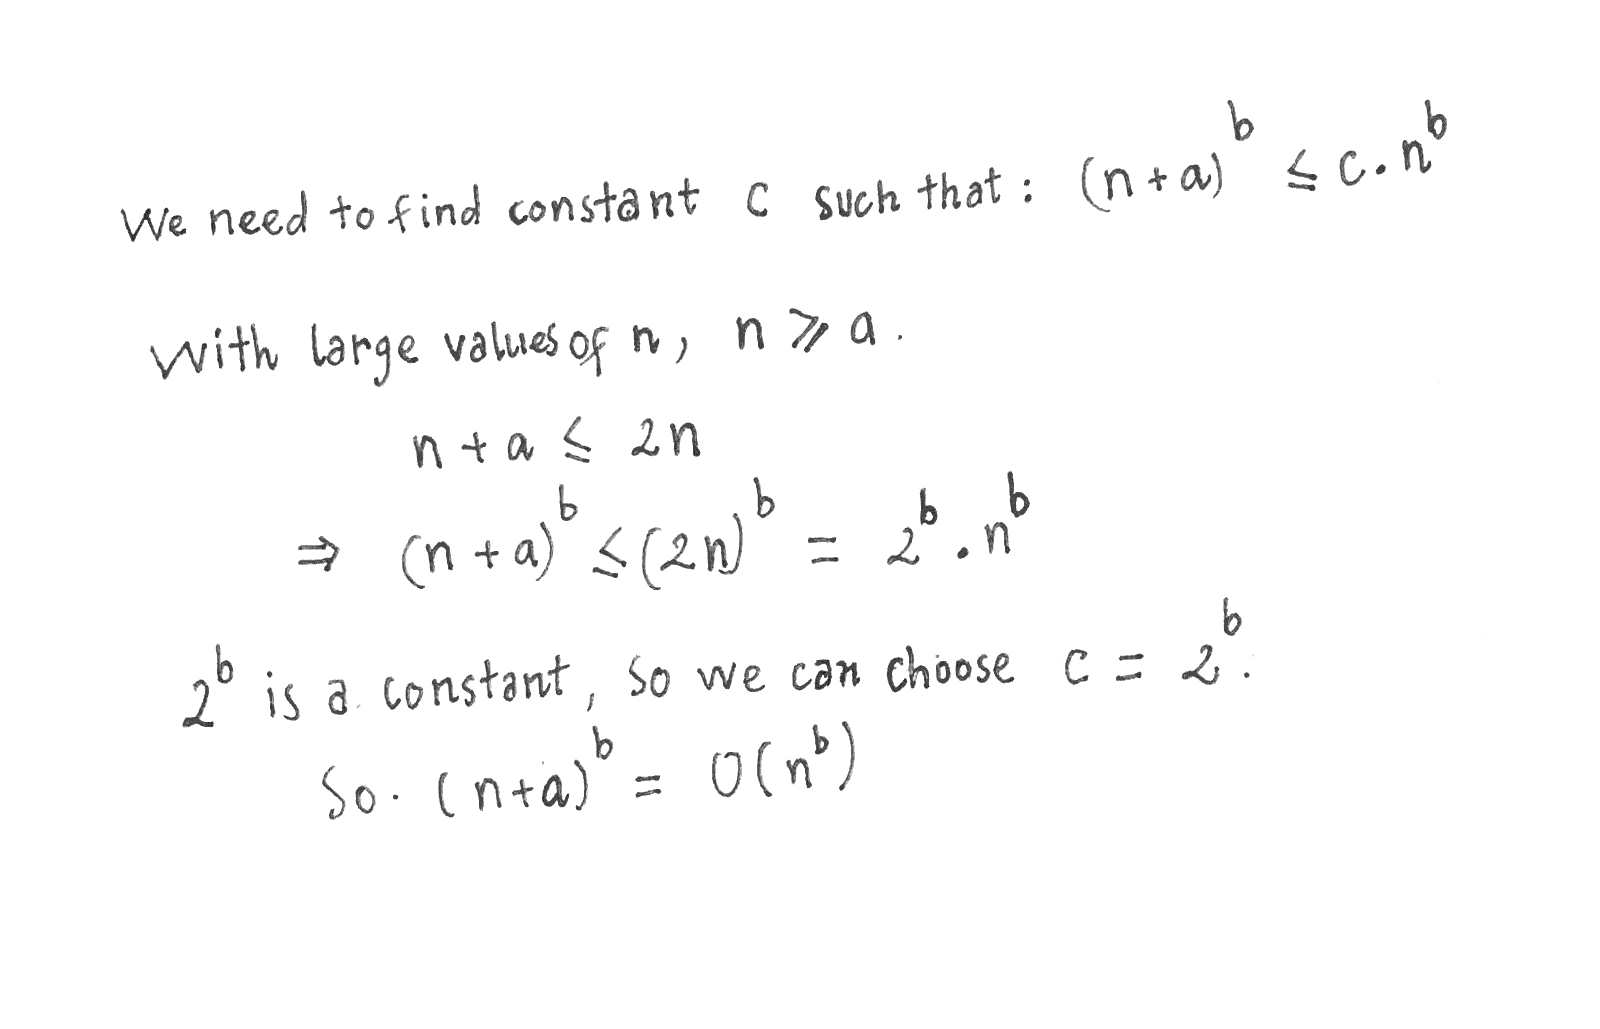 We need to find constant c such that : (n+a)^b ≤ c.n^b
With large values of n, n ⩾ a.
n + a ≤ 2n
⇒ (n + a)^b ≤ (2n)^b = 2^b . n^b
2^b is a constant, so we can choose c = 2^b.
So. (n+a)^b = O(n^b)